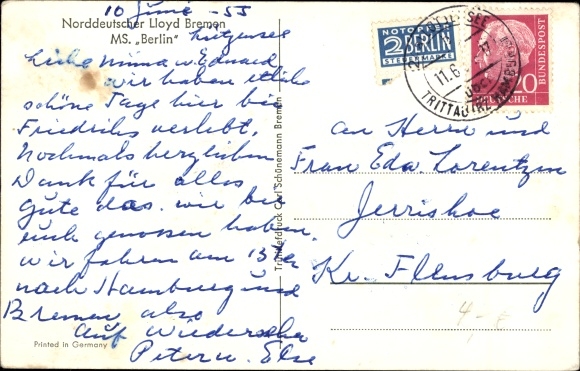 10 June - 55
Norddeutscher Lloyd Bremen
MS. „Berlin"
Lütjensee
Liebe Minna u. Eduard
wir haben etliche
schöne Tage hier bei
Friedrichs verlebt.
Nochmals herzlichen
Dank für alles
gute das wir bei
euch genossen haben.
wir fahren am 13ten
nach Hamburg und
Bremen also
auf wiedersehn
Peter u. Else
Printed in Germany
Tiefdruck Carl Schünemann Bremen
NOTOPFER
2 BERLIN
STEUERMARKE
11.6.
TRITTAU
DEUTSCHE BUNDESPOST
20
an Herrn und
Frau Edu. Lorentzen
Jerrishoe
Kr. Flensburg
4,-